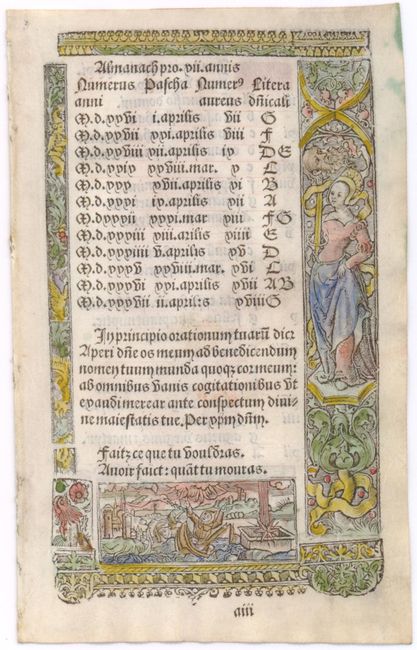 Almanach pro.xii.annis
Numerus Pascha Numerꝰ Litera
anni aureus dñicali
M.d.xxvi i.aprilis vii G
M.d.xxvii xxi.aprilis viii F
M.d.xxviii xii.aprilis ix DE
M.d.xxix xxviii.mar. x C
M.d.xxx xvii.aprilis xi B
M.d.xxxi ix.aprilis xii A
M.d.xxxii xxxi.mar xiii FG
M.d.xxxiii xiii.arilis xiiii E
M.d.xxxiiii v.aprilis xv D
M.d.xxxv xxviii.mar. xvi C
M.d.xxxvi xvi.aprilis xvii AB
M.d.xxxvii ii.aprilis xviii G
In principio orationum tuarũ dicr
Aperi dñe os meum ad benedicendum
nomen tuum munda quoqꝫ cor meum:
ab omnibus vanis cogitationibus vt
exaudi merear ante conspectum diui-
ne maiestatis tue. Per xpm dñm.
Faitz ce que tu vouldras.
Auoir faict: quãt tu mourras.
aiii